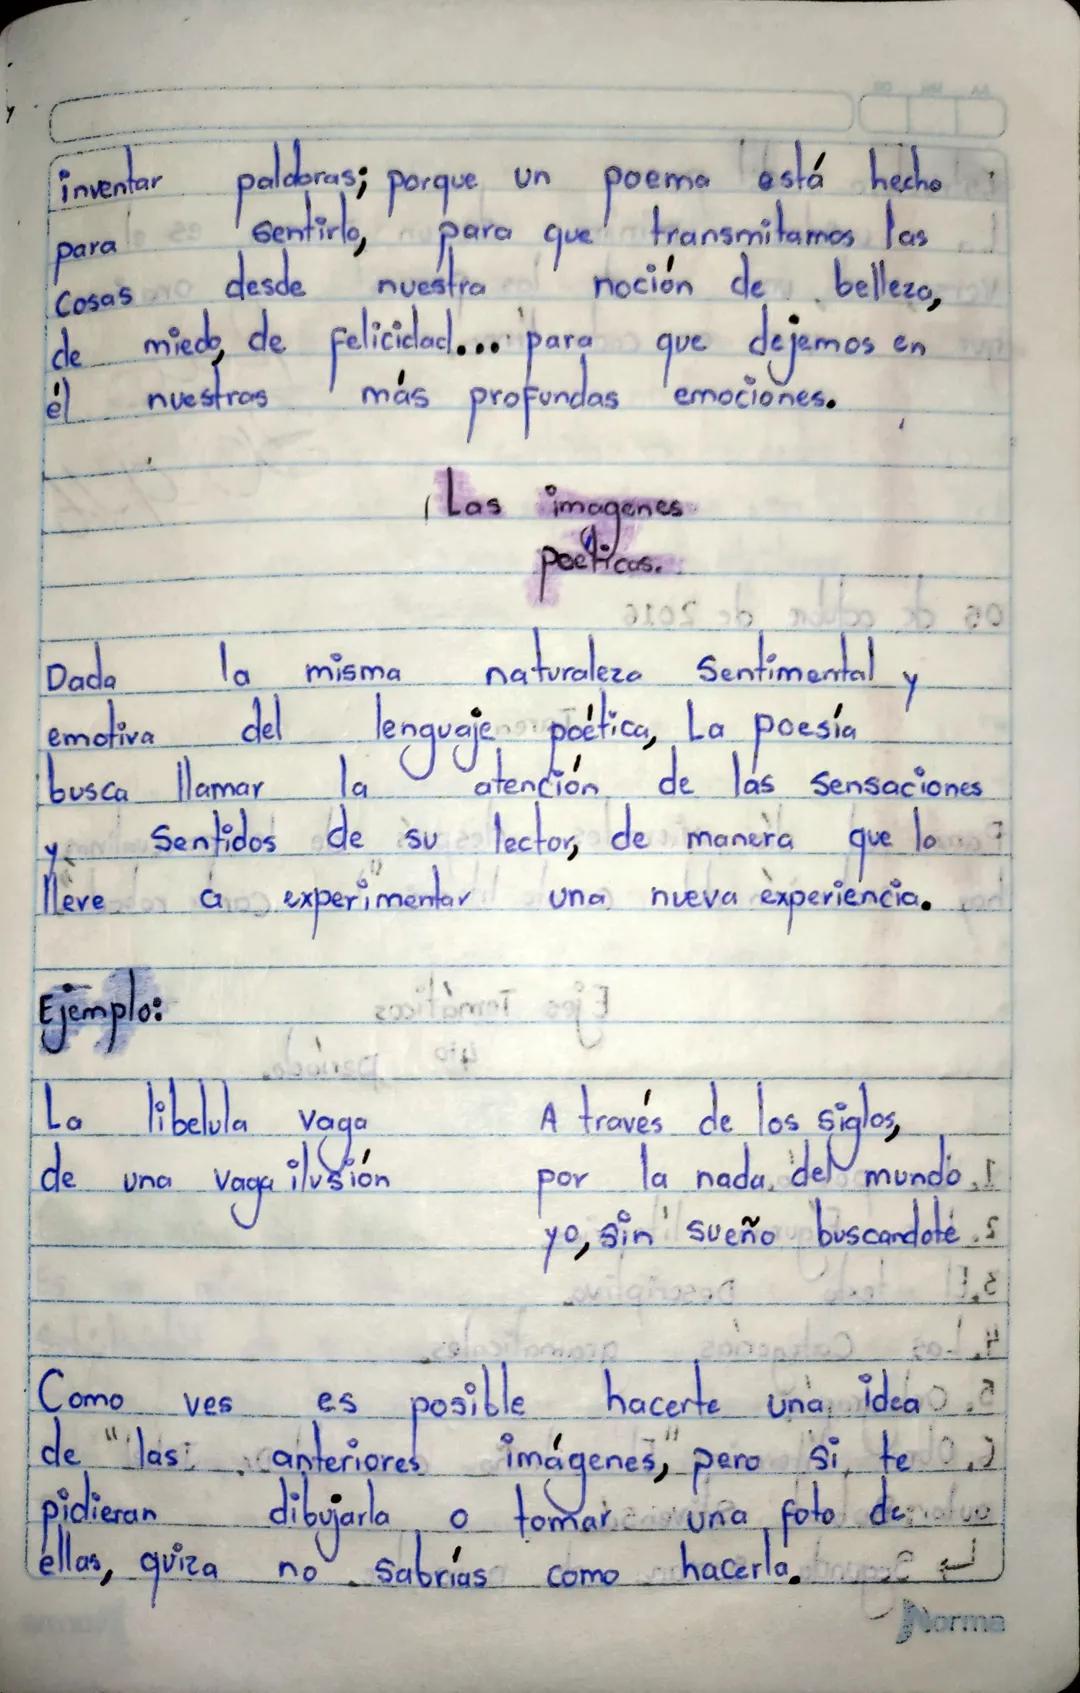 inventar palabras; porque un poema está hecho
para sentirlo, para que transmitamos las
cosas desde nuestra noción de belleza,
de miedo, de felicidad... para que dejemos en
él nuestras más profundas emociones.
Las imagenes
poéticas.
Dada la misma naturaleza Sentimental y
emotiva del lenguaje poética, La poesía
busca llamar la atención de las sensaciones
y Sentidos de su lector, de manera que lo
lleve a experimentar una nueva experiencia.
Ejemplo:
La libelula vaga
de una vaga ilusión
A través de los siglos,
por la nada del mundo
yo, sin sueño buscandote
Como ves es posible hacerte una idea
de "las anteriores imágenes," pero si te
pidieran dibujarla o tomar una foto de
ellas, quiza no sabrías como hacerla.
Norma